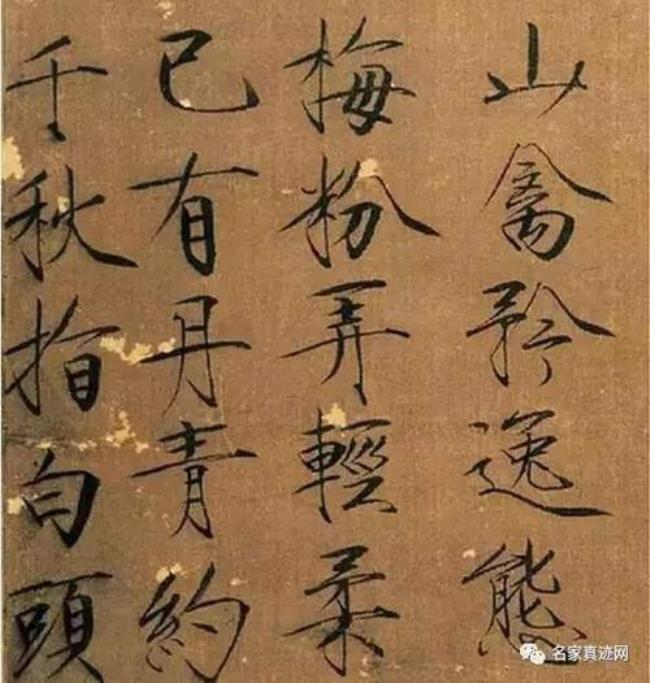 山禽矜逸態
梅粉弄輕柔
已有丹青約
千秋指白頭
名家真迹网